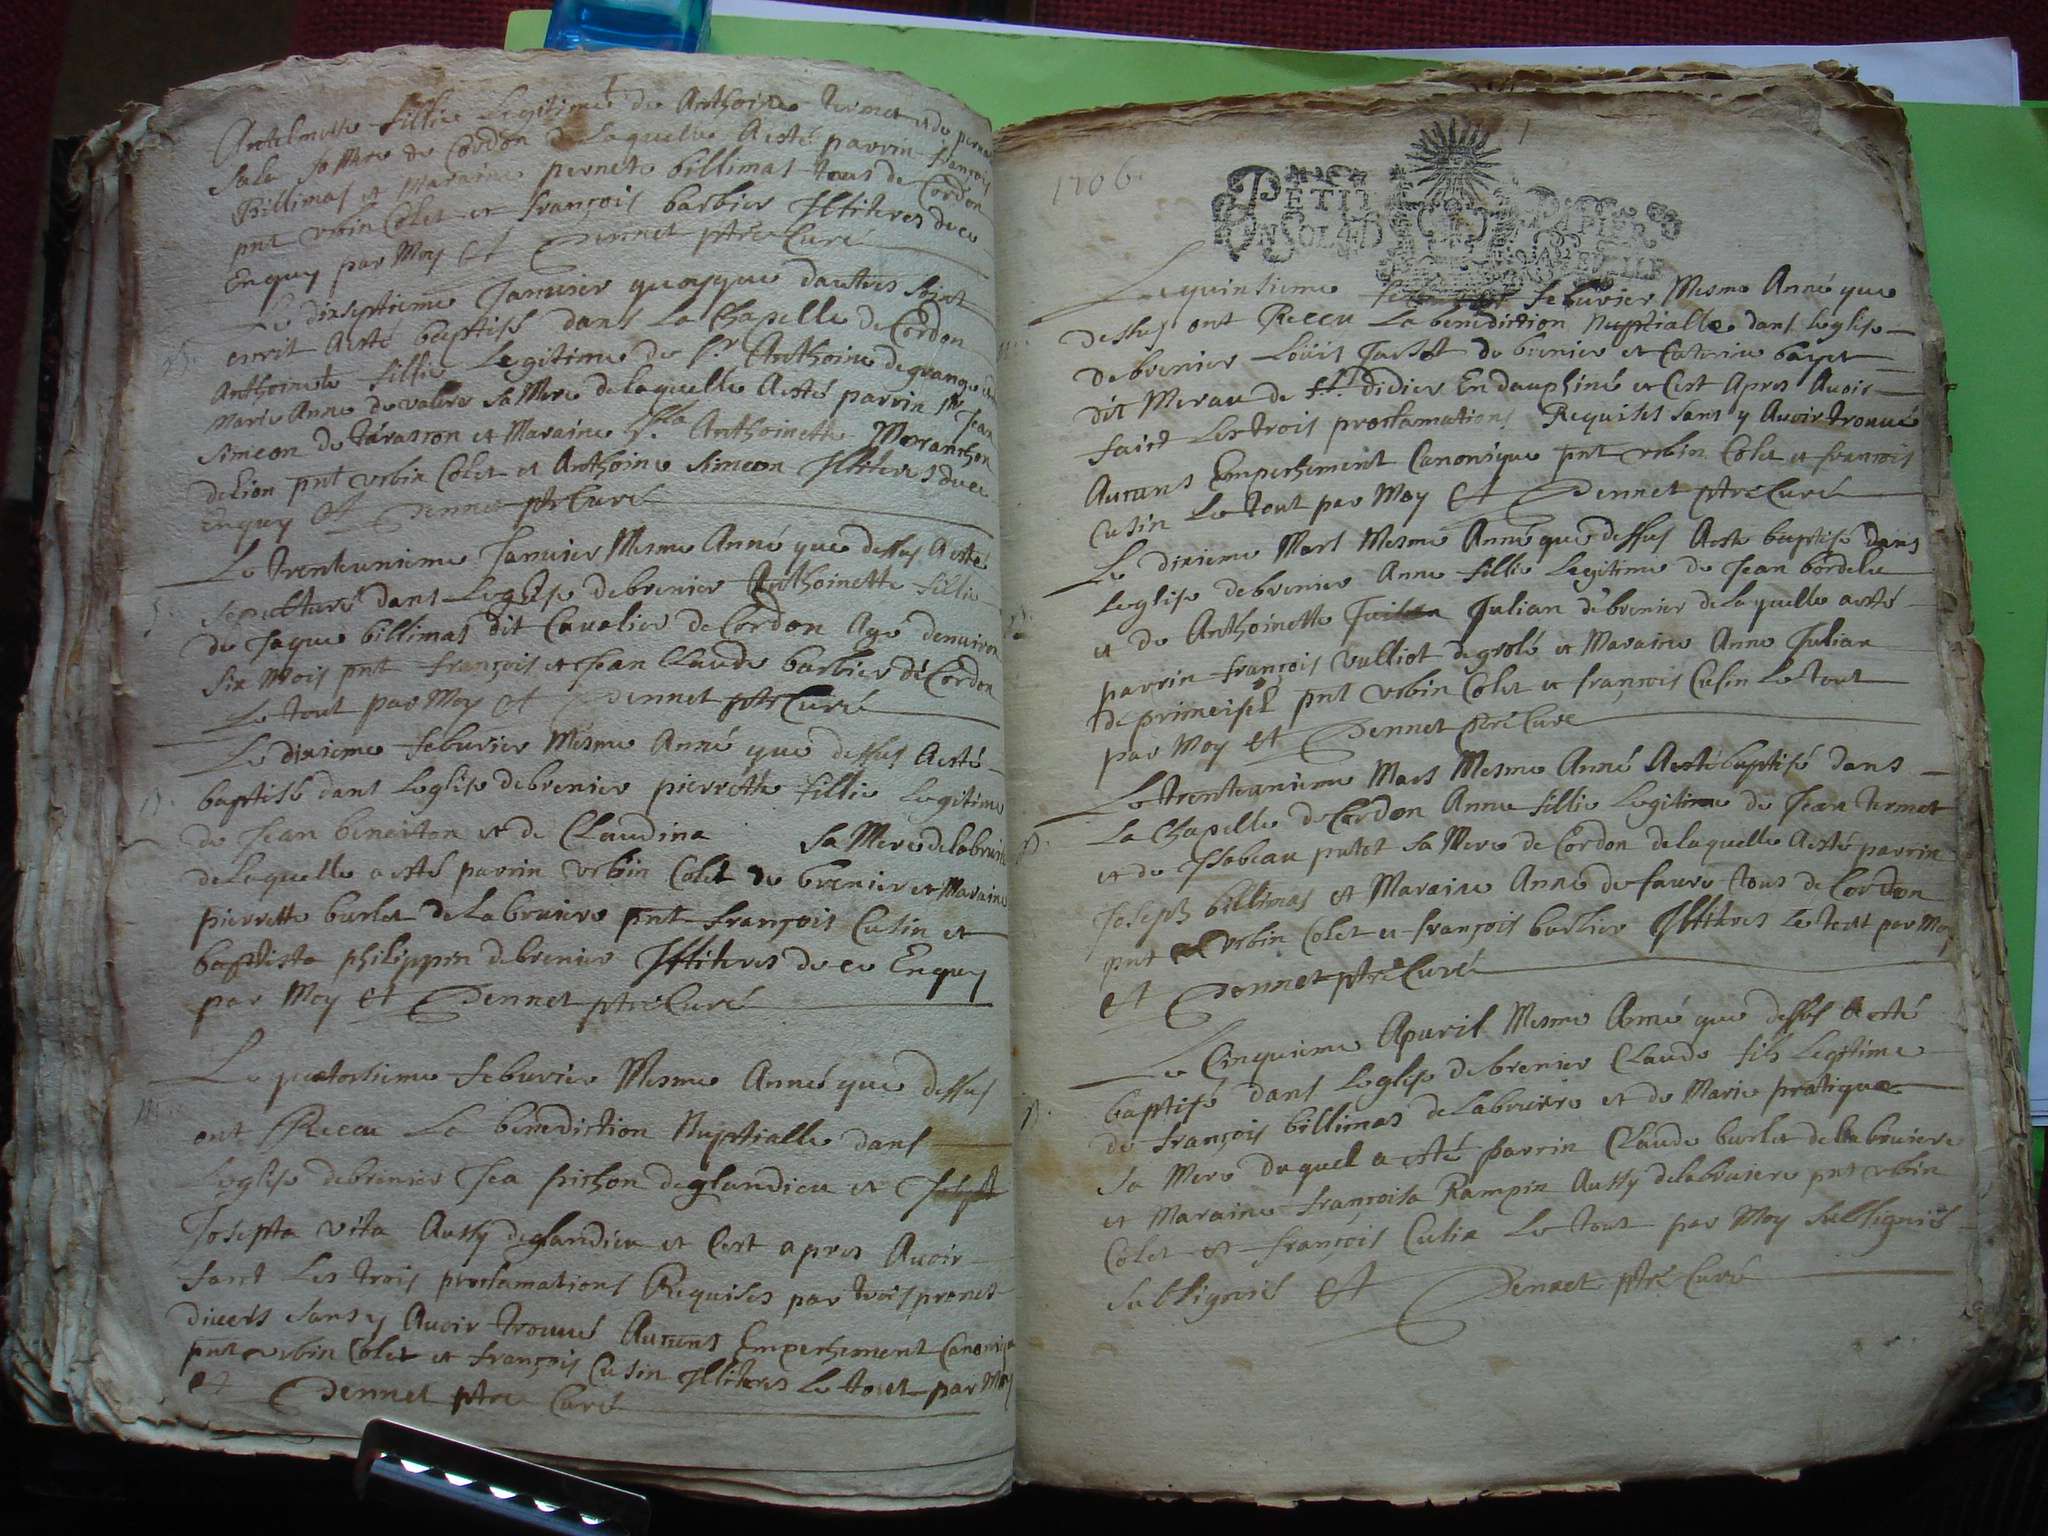 Antelmette fillie Legitime de Anthoine termet et de perna
Sala sa Mere de Cordon de Laquelle Aesté parrin françois
Billimas et Maraine pernete billimas tous de Cordon
pnt vrbin Colet et françois barbier Illiteres de ce
Enquy par Moy Et Dennet ptre Curé
Le dixseptieme Januier quoyque dautres Soint
escrit Aesté baptisé dans La Chapelle de Cordon
Anthoinete fillie Legitime de Sr Anthoine degrange et de
Marie Anne de valere Sa Mere de laquelle Aesté parrin Mr Jean
Simeon de tarascon et Maraine Anthoinette Moranchon
de Lion pnt vrbin Colet et Anthoine Simeon Illiteres de ce
Enquy Et Dennet ptre Curé
Le trenteunieme Januier Mesme Anné que dessus Aesté
sepulturé dans Leglise debrenier Anthoinette fillie
de Jaque billimas dit Caualier de Cordon Agé denuiron
Six Mois pnt françois et Jean Claude barbier de Cordon
Le tout par Moy Et Dennet ptre Curé
Le dixieme feburier Mesme Anné que dessus Aesté
baptisé dans Leglise debrenier pierrette fillie Legitime
de Jean beneiton et de Claudina Sa Mere de labruiere
de Laquelle aesté parrin vrbin Colet de brenier et Maraine
pierrette burlet de Labruiere pnt françois Cusin et
baptista philippin debrenier Illiteres de ce Enquy
par Moy Et Dennet ptre Curé
Le quatorsieme feburier Mesme Anné que dessus
ont Receu La benediction Nuptialle dans
Leglise debrenier Jea pichon deglandieu et
Josepta vita Aussy deglandieu et Cest apres Auoir
faict Les trois proclamations Requises par trois prones
diuers sans y Auoir trouué Aucuns Empechement Canoniq
pnt vrbin Colet et françois Cusin Illiteres Le tout par Moy
Et Dennet ptre Curé
1706
PETIT PAPIER
UN SOL
Le quinsieme feburier Mesme Anné que
dessus ont Receu La benediction Nuptialle dans Leglise
debrenier Loüis Jallot de brenier et Caterine bayet
dit Merau de St didier En dauphiné et Cest Apres Auoir
faict Les trois proclamations Requises sans y Auoir trouué
Aucuns Empechement Canonique pnt vrbin Colet et françois
Cusin Le tout par Moy Et Dennet ptre Curé
Le dixieme Mars Mesme Anné que dessus Aesté baptisé dans
Leglise debrenier Anne fillie Legitime de Jean bordele
et de Anthoinette Julian debrenier de laquelle aesté
parrin françois vulliot degrolé et Maraine Anne Julian
de primeisel pnt vrbin Colet et françois Cusin Le tout
par Moy Et Dennet ptre Curé
Le trenteunieme Mars Mesme Anné Aesté baptisé dans
La Chapelle de Cordon Anne fillie Legitime de Jean termet
et de Isabeau putot Sa Mere de Cordon de laquelle Aesté parrin
Joseph billimas et Maraine Anne de faure tous de Cordon
pnt vrbin Colet et françois barbier Illiteres Le tout par Moy
Et Dennet ptre Curé
Le Cinquieme Apuril Mesme Anné que dessus Aesté
baptisé dans Leglise debrenier Claude fils Legitime
de françois billimas de Labruiere et de Marie pratique
Sa Mere duquel aesté parrin Claude burlet de labruiere
et Maraine françoisa Rampin Aussy de labruiere pnt vrbin
Colet et françois Cusin Le tout par Moy Sulsignés
sulsignés Et Dennet ptre Curé